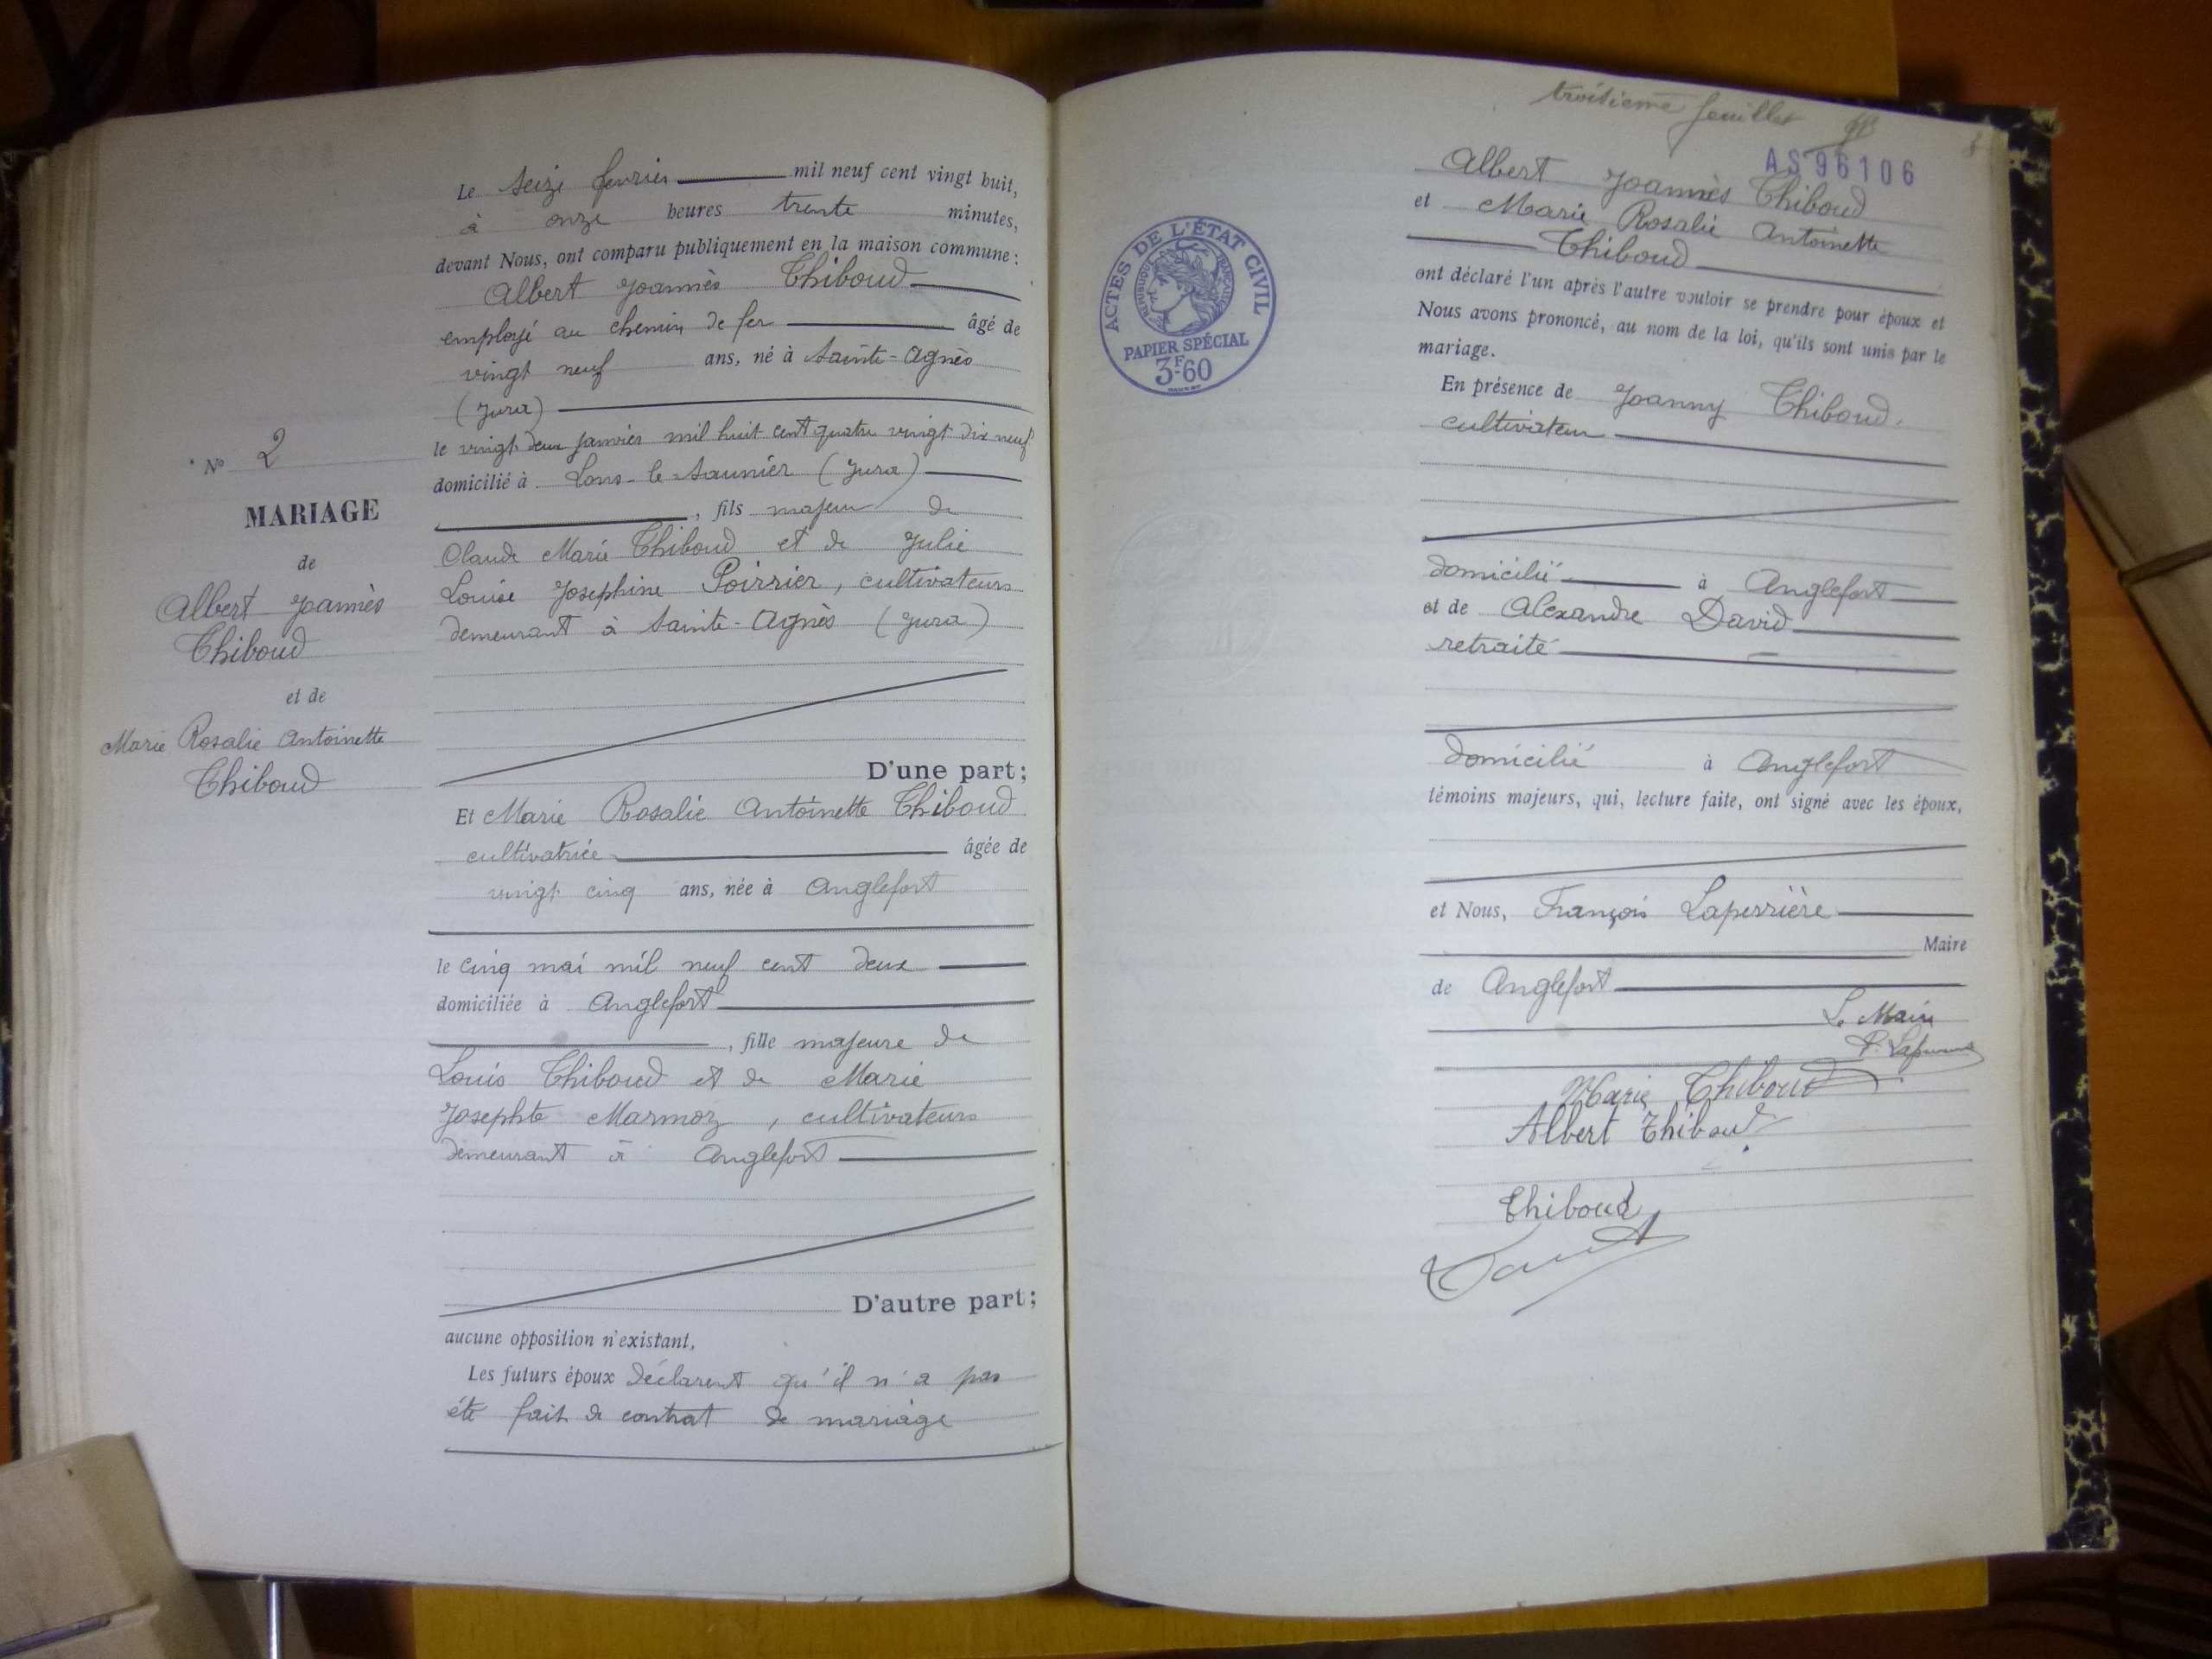 N° 2
MARIAGE
de
Albert Joannès
Thiboud
et de
Marie Rosalie Antoinette
Thiboud
Le seize fevrier mil neuf cent vingt huit,
à onze heures trente minutes,
devant Nous, ont comparu publiquement en la maison commune :
Albert Joannès Thiboud
employé au chemin de fer âgé de
vingt neuf ans, né à Sainte-Agnès
(Jura)
le vingt deux janvier mil huit cent quatre vingt dix neuf
domicilié à Lons-le-Saunier (Jura)
, fils majeur de
Claude Marie Thiboud et de Julie
Louise Josephine Poirrier, cultivateurs
demeurant à Sainte-Agnès (Jura)
D'une part ;
Et Marie Rosalie Antoinette Thiboud
cultivatrice âgée de
vingt cinq ans, née à Anglefort
le cinq mai mil neuf cent deux
domiciliée à Anglefort
, fille majeure de
Louis Thiboud et de Marie
Josephte Marmoz, cultivateurs
demeurant à Anglefort
D'autre part ;
aucune opposition n'existant,
Les futurs époux déclarent qu'il n'a pas
été fait de contrat de mariage
troisième feuillet
AS 96106
ACTES DE L'ÉTAT CIVIL
RÉPUBLIQUE FRANÇAISE
PAPIER SPÉCIAL
3F60
Albert Joannès Thiboud
et Marie Rosalie Antoinette
Thiboud
ont déclaré l'un après l'autre vouloir se prendre pour époux et
Nous avons prononcé, au nom de la loi, qu'ils sont unis par le
mariage.
En présence de Joanny Thiboud,
cultivateur
domicilié à Anglefort
et de Alexandre David
retraité
domicilié à Anglefort
témoins majeurs, qui, lecture faite, ont signé avec les époux,
et Nous, François Laperrière
Maire
de Anglefort
Le Maire
F. Laperrière
Marie Thiboud
Albert Thiboud
Thiboud
David